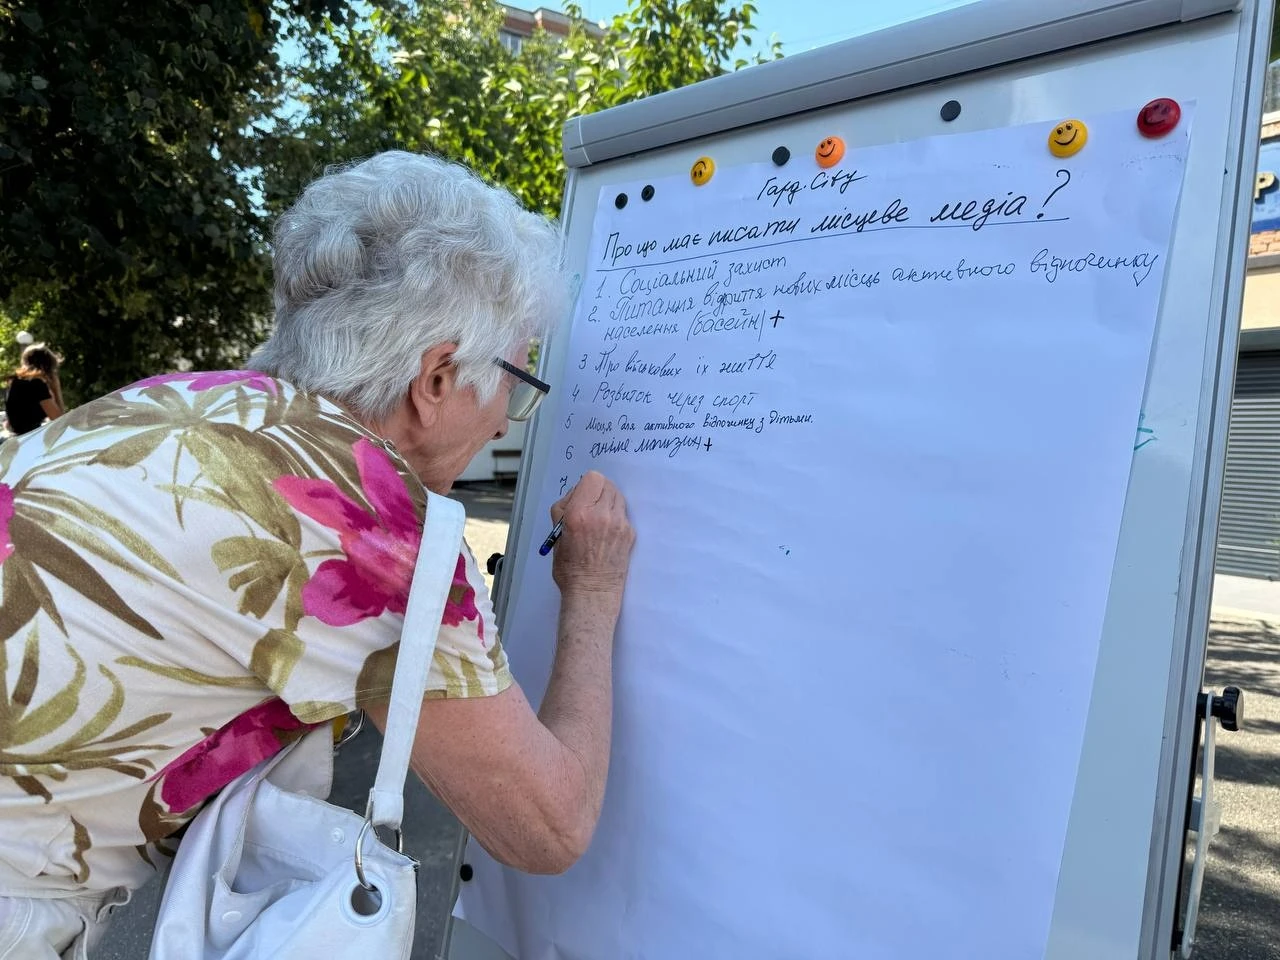 Гард.City
Про що має писати місцеве медіа?
1. Соціальний захист
2. Питання відкриття нових місць активного відпочинку
населення (басейн) +
3 Про військових їх життя
4 Розвиток через спорт
5 Місця для активного відпочинку з дітьми.
6 аніме магазин +
7